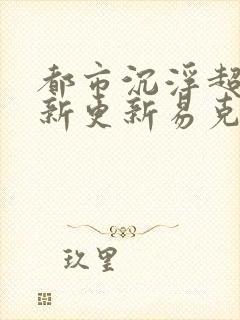 都市沉浮超
新更新易克
玖里